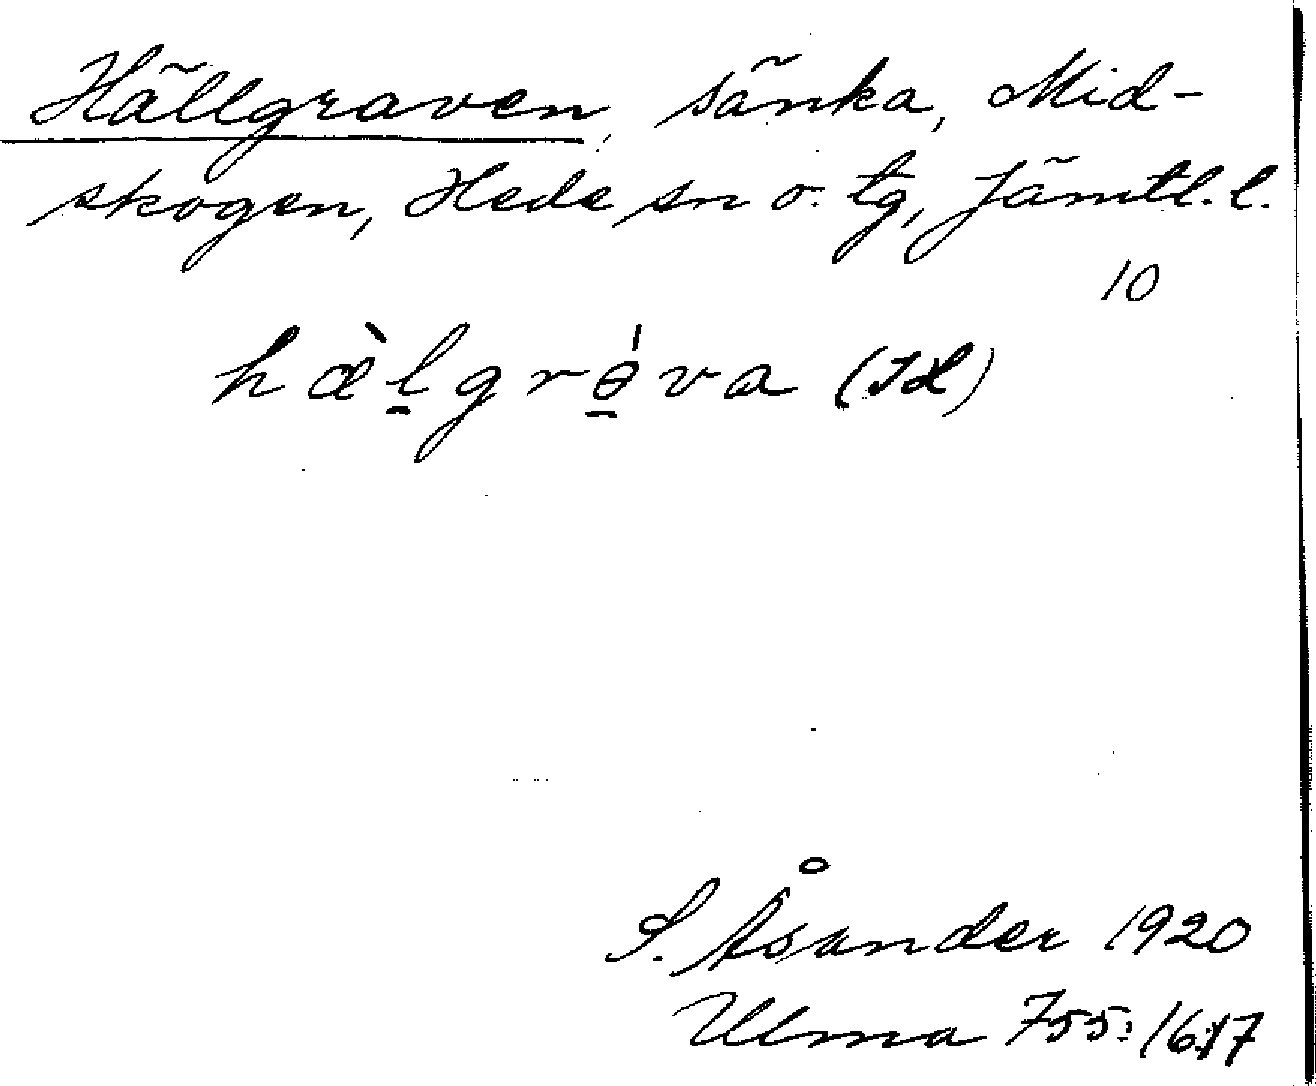 Hällgraven, sänka, Mid-
skogen, Hede sn o. tg, Jämtl. l.
10
hæ̀l̠grɵ̠́va (Id)
S. Åsander 1920
Ulma 755: 16:17